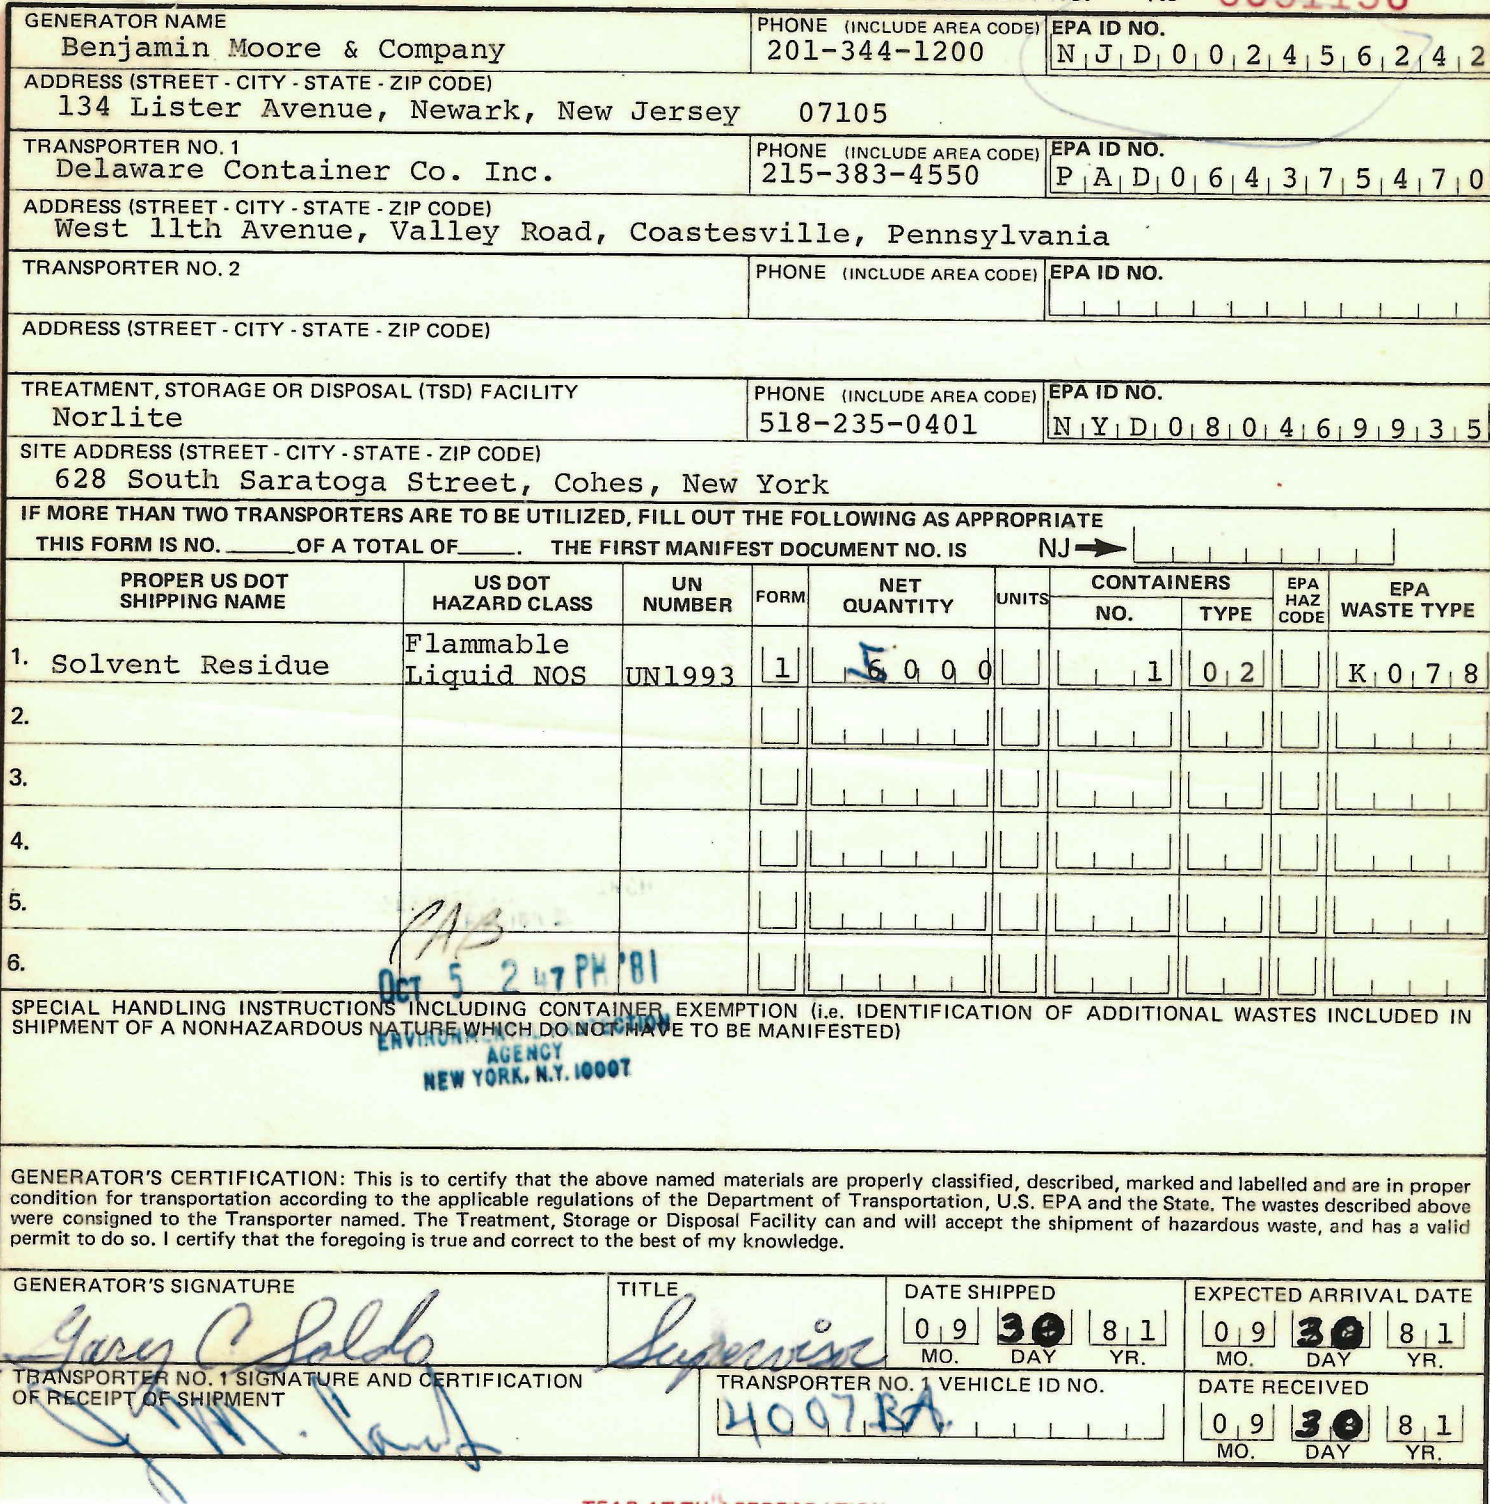 GENERATOR NAME PHONE (INCLUDE AREA CODE) EPA ID NO.
Benjamin Moore & Company 201-344-1200 NJD002456242
ADDRESS (STREET - CITY - STATE - ZIP CODE)
134 Lister Avenue, Newark, New Jersey 07105
TRANSPORTER NO. 1 PHONE (INCLUDE AREA CODE) EPA ID NO.
Delaware Container Co. Inc. 215-383-4550 PAD064375470
ADDRESS (STREET - CITY - STATE - ZIP CODE)
West 11th Avenue, Valley Road, Coastesville, Pennsylvania
TRANSPORTER NO. 2 PHONE (INCLUDE AREA CODE) EPA ID NO.
ADDRESS (STREET - CITY - STATE - ZIP CODE)
TREATMENT, STORAGE OR DISPOSAL (TSD) FACILITY PHONE (INCLUDE AREA CODE) EPA ID NO.
Norlite 518-235-0401 NYD080469935
SITE ADDRESS (STREET - CITY - STATE - ZIP CODE)
628 South Saratoga Street, Cohes, New York
IF MORE THAN TWO TRANSPORTERS ARE TO BE UTILIZED, FILL OUT THE FOLLOWING AS APPROPRIATE
THIS FORM IS NO. ____ OF A TOTAL OF ____. THE FIRST MANIFEST DOCUMENT NO. IS NJ
PROPER US DOT SHIPPING NAME US DOT HAZARD CLASS UN NUMBER FORM NET QUANTITY UNITS CONTAINERS NO. TYPE EPA HAZ CODE EPA WASTE TYPE
1. Solvent Residue Flammable Liquid NOS UN1993 1 5000 1 02 K078
2.
3.
4.
5.
6.
OCT 5 2 47 PM '81
SPECIAL HANDLING INSTRUCTIONS INCLUDING CONTAINER EXEMPTION (i.e. IDENTIFICATION OF ADDITIONAL WASTES INCLUDED IN
SHIPMENT OF A NONHAZARDOUS NATURE WHICH DO NOT HAVE TO BE MANIFESTED)
ENVIRONMENTAL PROTECTION
AGENCY
NEW YORK, N.Y. 10007
GENERATOR'S CERTIFICATION: This is to certify that the above named materials are properly classified, described, marked and labelled and are in proper
condition for transportation according to the applicable regulations of the Department of Transportation, U.S. EPA and the State. The wastes described above
were consigned to the Transporter named. The Treatment, Storage or Disposal Facility can and will accept the shipment of hazardous waste, and has a valid
permit to do so. I certify that the foregoing is true and correct to the best of my knowledge.
GENERATOR'S SIGNATURE TITLE DATE SHIPPED EXPECTED ARRIVAL DATE
Gary C Soldo Supervisor 09 30 81 09 30 81
MO. DAY YR. MO. DAY YR.
TRANSPORTER NO. 1 SIGNATURE AND CERTIFICATION TRANSPORTER NO. 1 VEHICLE ID NO. DATE RECEIVED
OF RECEIPT OF SHIPMENT
4007BA 09 30 81
MO. DAY YR.